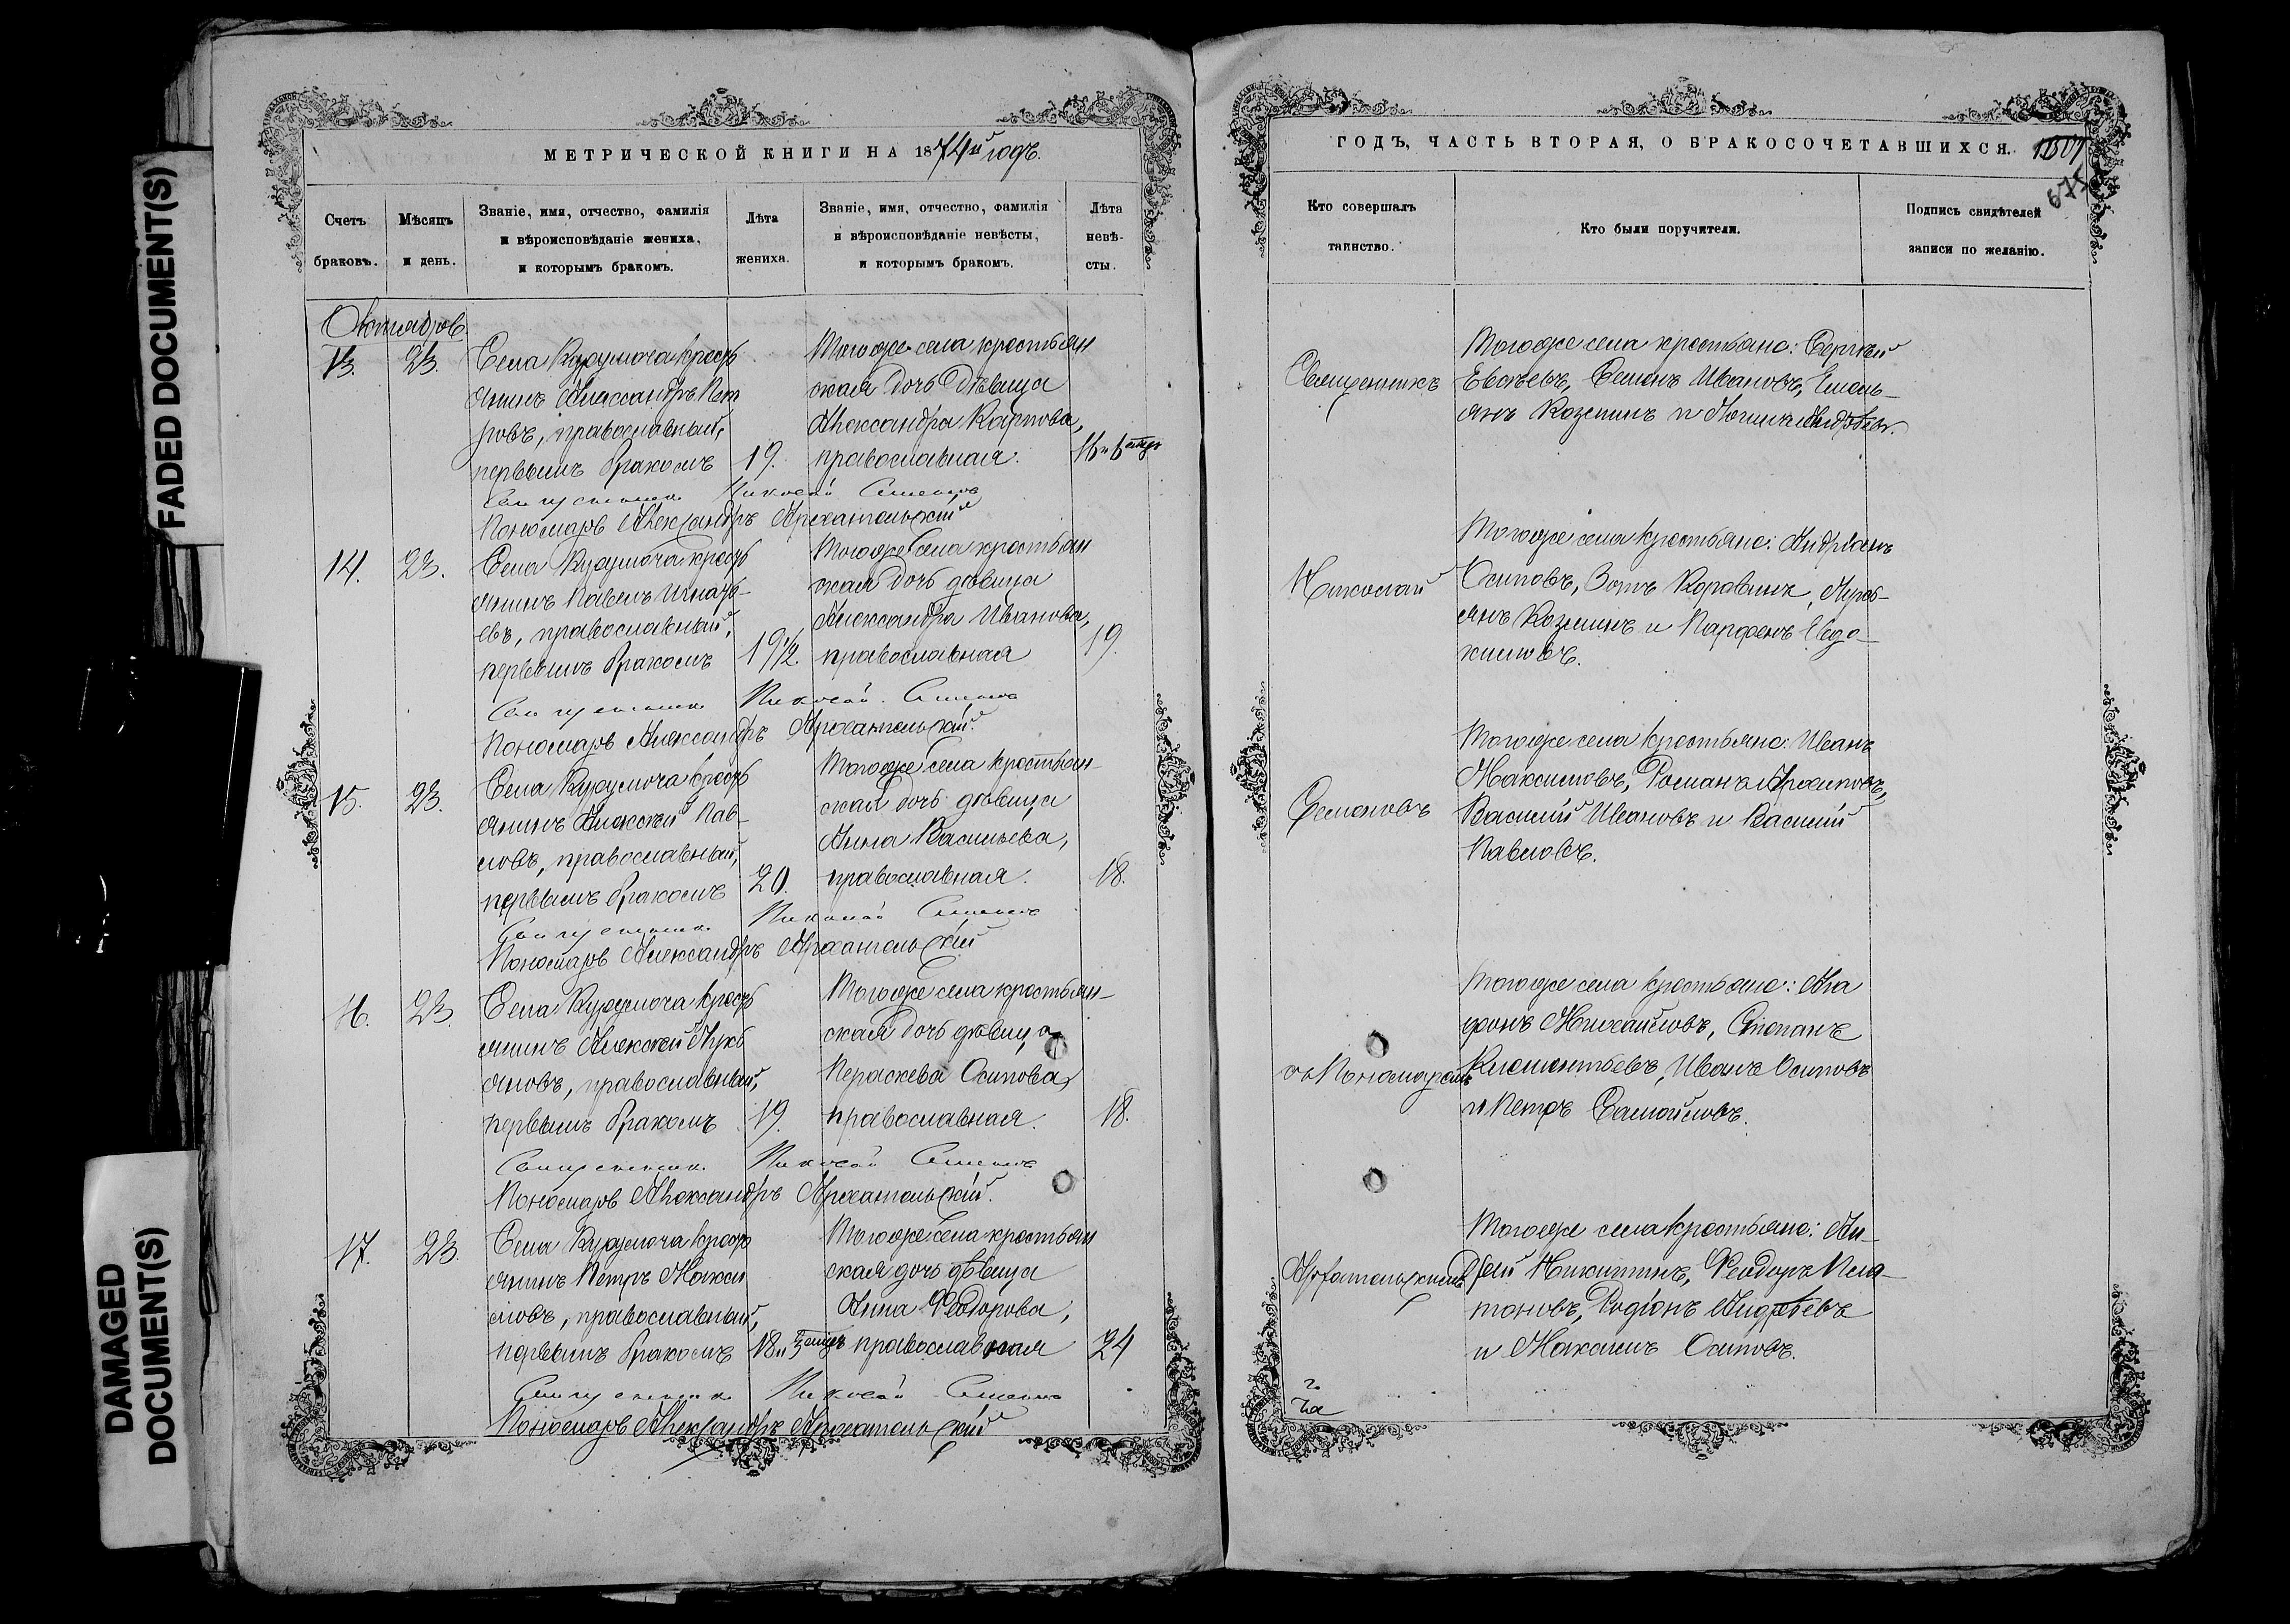 FADED DOCUMENT(S)
DAMAGED
DOCUMENT(S)
МЕТРИЧЕСКОЙ КНИГИ НА 1874й годъ.
Счетъ браковъ.
Мѣсяцъ и день.
Званіе, имя, отчество, фамилія
и вѣроисповѣданіе жениха,
и которымъ бракомъ.
Лѣта жениха.
Званіе, имя, отчество, фамилія
и вѣроисповѣданіе невѣсты,
и которымъ бракомъ.
Лѣта
невѣ-
сты.
Октябрь.
13. 23.
Села Курумоча крест
янинъ Александръ Пет
ровъ, православный,
первымъ бракомъ 19.
Тогоже села крестьян
ская дочь дѣвица
Александра Карпова,
православная. 16 и 6
Священникъ Николай Семеновъ
Пономарь Александръ Архангельскій
14. 23.
Села Курумоча крест
янинъ Павелъ Игнать-
евъ, православный,
первымъ бракомъ 19 1/2.
Тогоже села крестьян
ская дочь дѣвица
Александра Иванова,
православная 19.
Священникъ Николай Семеновъ
Пономарь Александръ Архангельскій.
15. 23.
Села Курумоча крест
янинъ Алексѣй Пав-
ловъ, православный,
первымъ бракомъ 20.
Тогоже села крестьян-
ская дочь дѣвица
Анна Васильева,
православная. 18.
Священникъ Николай Семеновъ
Пономарь Александръ Архангельскій
16. 23.
Села Курумоча крест
янинъ Алексѣй Лукь
яновъ, православный,
первымъ бракомъ 19.
Тогоже села крестьян-
ская дочь дѣвица
Параскева Осипова,
православная. 18.
Священникъ Николай Семеновъ
Пономарь Александръ Архангельскій.
17. 23.
Села Курумоча крест
янинъ Петръ Макси
мовъ, православный,
первымъ бракомъ 18 и 5
Тогоже села крестьян
ская дочь дѣвица
Анна Ѳеодорова,
православная 24
Священникъ Николай Семеновъ
Пономарь Александръ Архангельскій
ГОДЪ, ЧАСТЬ ВТОРАЯ, О БРАКОСОЧЕТАВШИХСЯ.
675
Кто совершалъ
таинство.
Кто были поручители.
Подпись свидѣтелей
записи по желанію.
Священникъ
Николай
Семеновъ
съ Пономаремъ
Архангельскимъ
Тогоже села крестьяне: Сергѣй
Евсѣевъ, Семенъ Ивановъ, Емель-
янъ Козминъ и Андрѣевъ.
Тогоже села крестьяне: Андріанъ
Осиповъ, Зотъ
янъ Козминъ и Парфенъ Евдо-
кимовъ.
Тогоже села крестьяне: Иванъ
Максимовъ, Романъ
Василій Ивановъ и Василій
Павловъ.
Тогоже села крестьяне: Ага
фонъ Михайловъ, Степанъ
Климентьевъ, Иванъ Осиповъ
и Петръ Самойловъ.
Тогоже села крестьяне: Ан-
дрей Никитинъ, Ѳеодоръ Пла-
тоновъ, Родіонъ Андрѣевъ
и Максимъ Осиповъ.